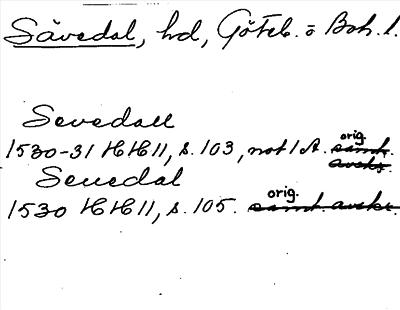 Sävedal, hd, Göteb. o Boh. l.
Sevedall
1530-31 HH 11, s. 103, not 1 A. orig. samt. avskr.
Seuedal
1530 HH 11, s. 105. orig. samt. avskr.